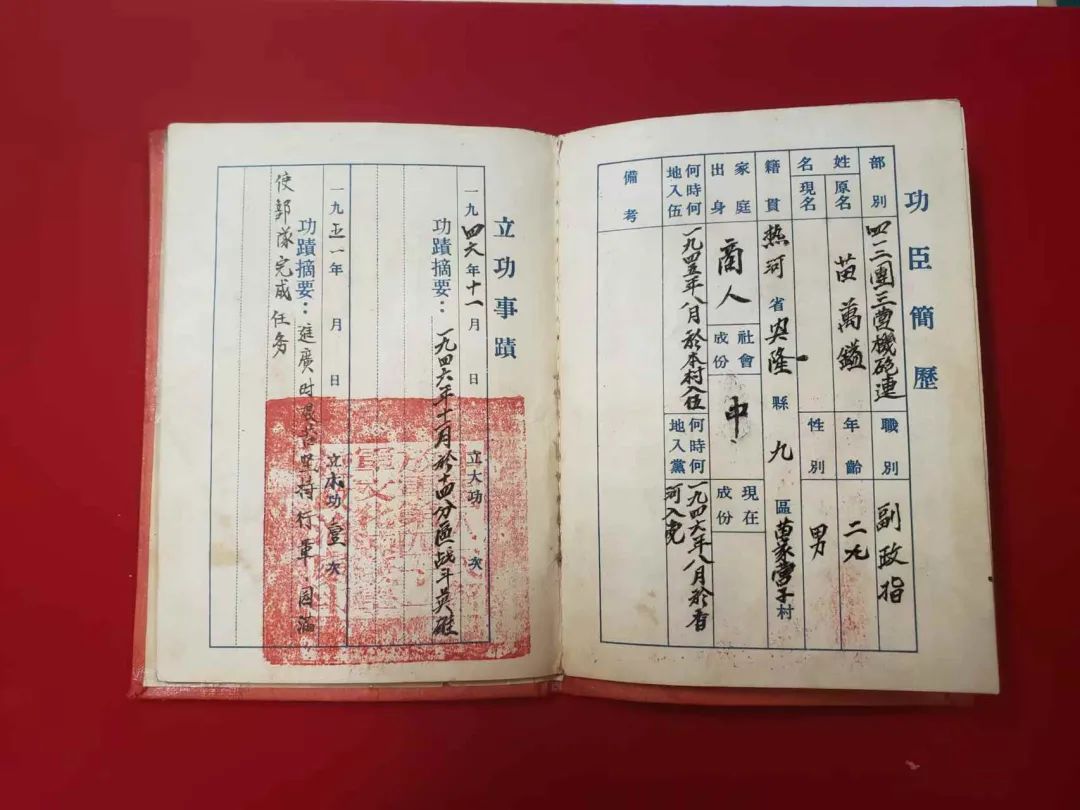 功臣簡歷
部別 四二團三營機砲連 職別 副政指
姓名 原名 苗萬鎰 年齡 二九
現名 性別 男
籍貫 热河省兴隆縣九區苗家營子村
家庭出身 商人 社會成份 中 現在成份
何時何地入伍 一九四五年八月於本村入伍 何時何地入黨 一九四六年八月於香河入党
備考
立功事蹟
一九四六年十一月 日 立大功 次
功蹟摘要：一九四六年十一月於十四分區战斗英雄
一九五一年 月 日 立功壹次
功蹟摘要：進廣时 坚持行軍 圆滿
使部隊完成任务